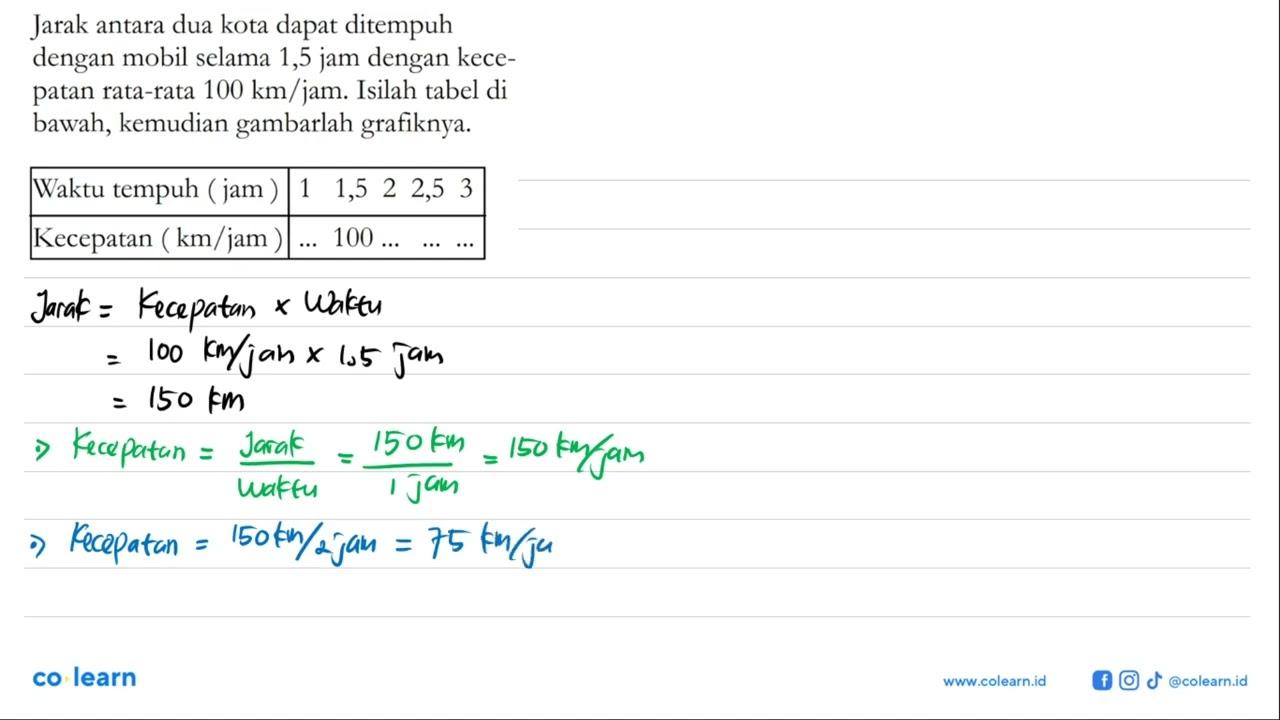 Jarak antara dua kota dapat ditempuh
dengan mobil selama 1,5 jam dengan kece-
patan rata-rata 100 km/jam. Isilah tabel di
bawah, kemudian gambarlah grafiknya.
Waktu tempuh ( jam ) 1 1,5 2 2,5 3
Kecepatan ( km/jam ) ... 100 ... ... ...
Jarak = Kecepatan × Waktu
= 100 km/jam × 1,5 jam
= 150 km
⇒ Kecepatan = Jarak/Waktu = 150 km/1 jam = 150 km/jam
⇒ Kecepatan = 150 km/2 jam = 75 km/ja
co learn
www.colearn.id @colearn.id